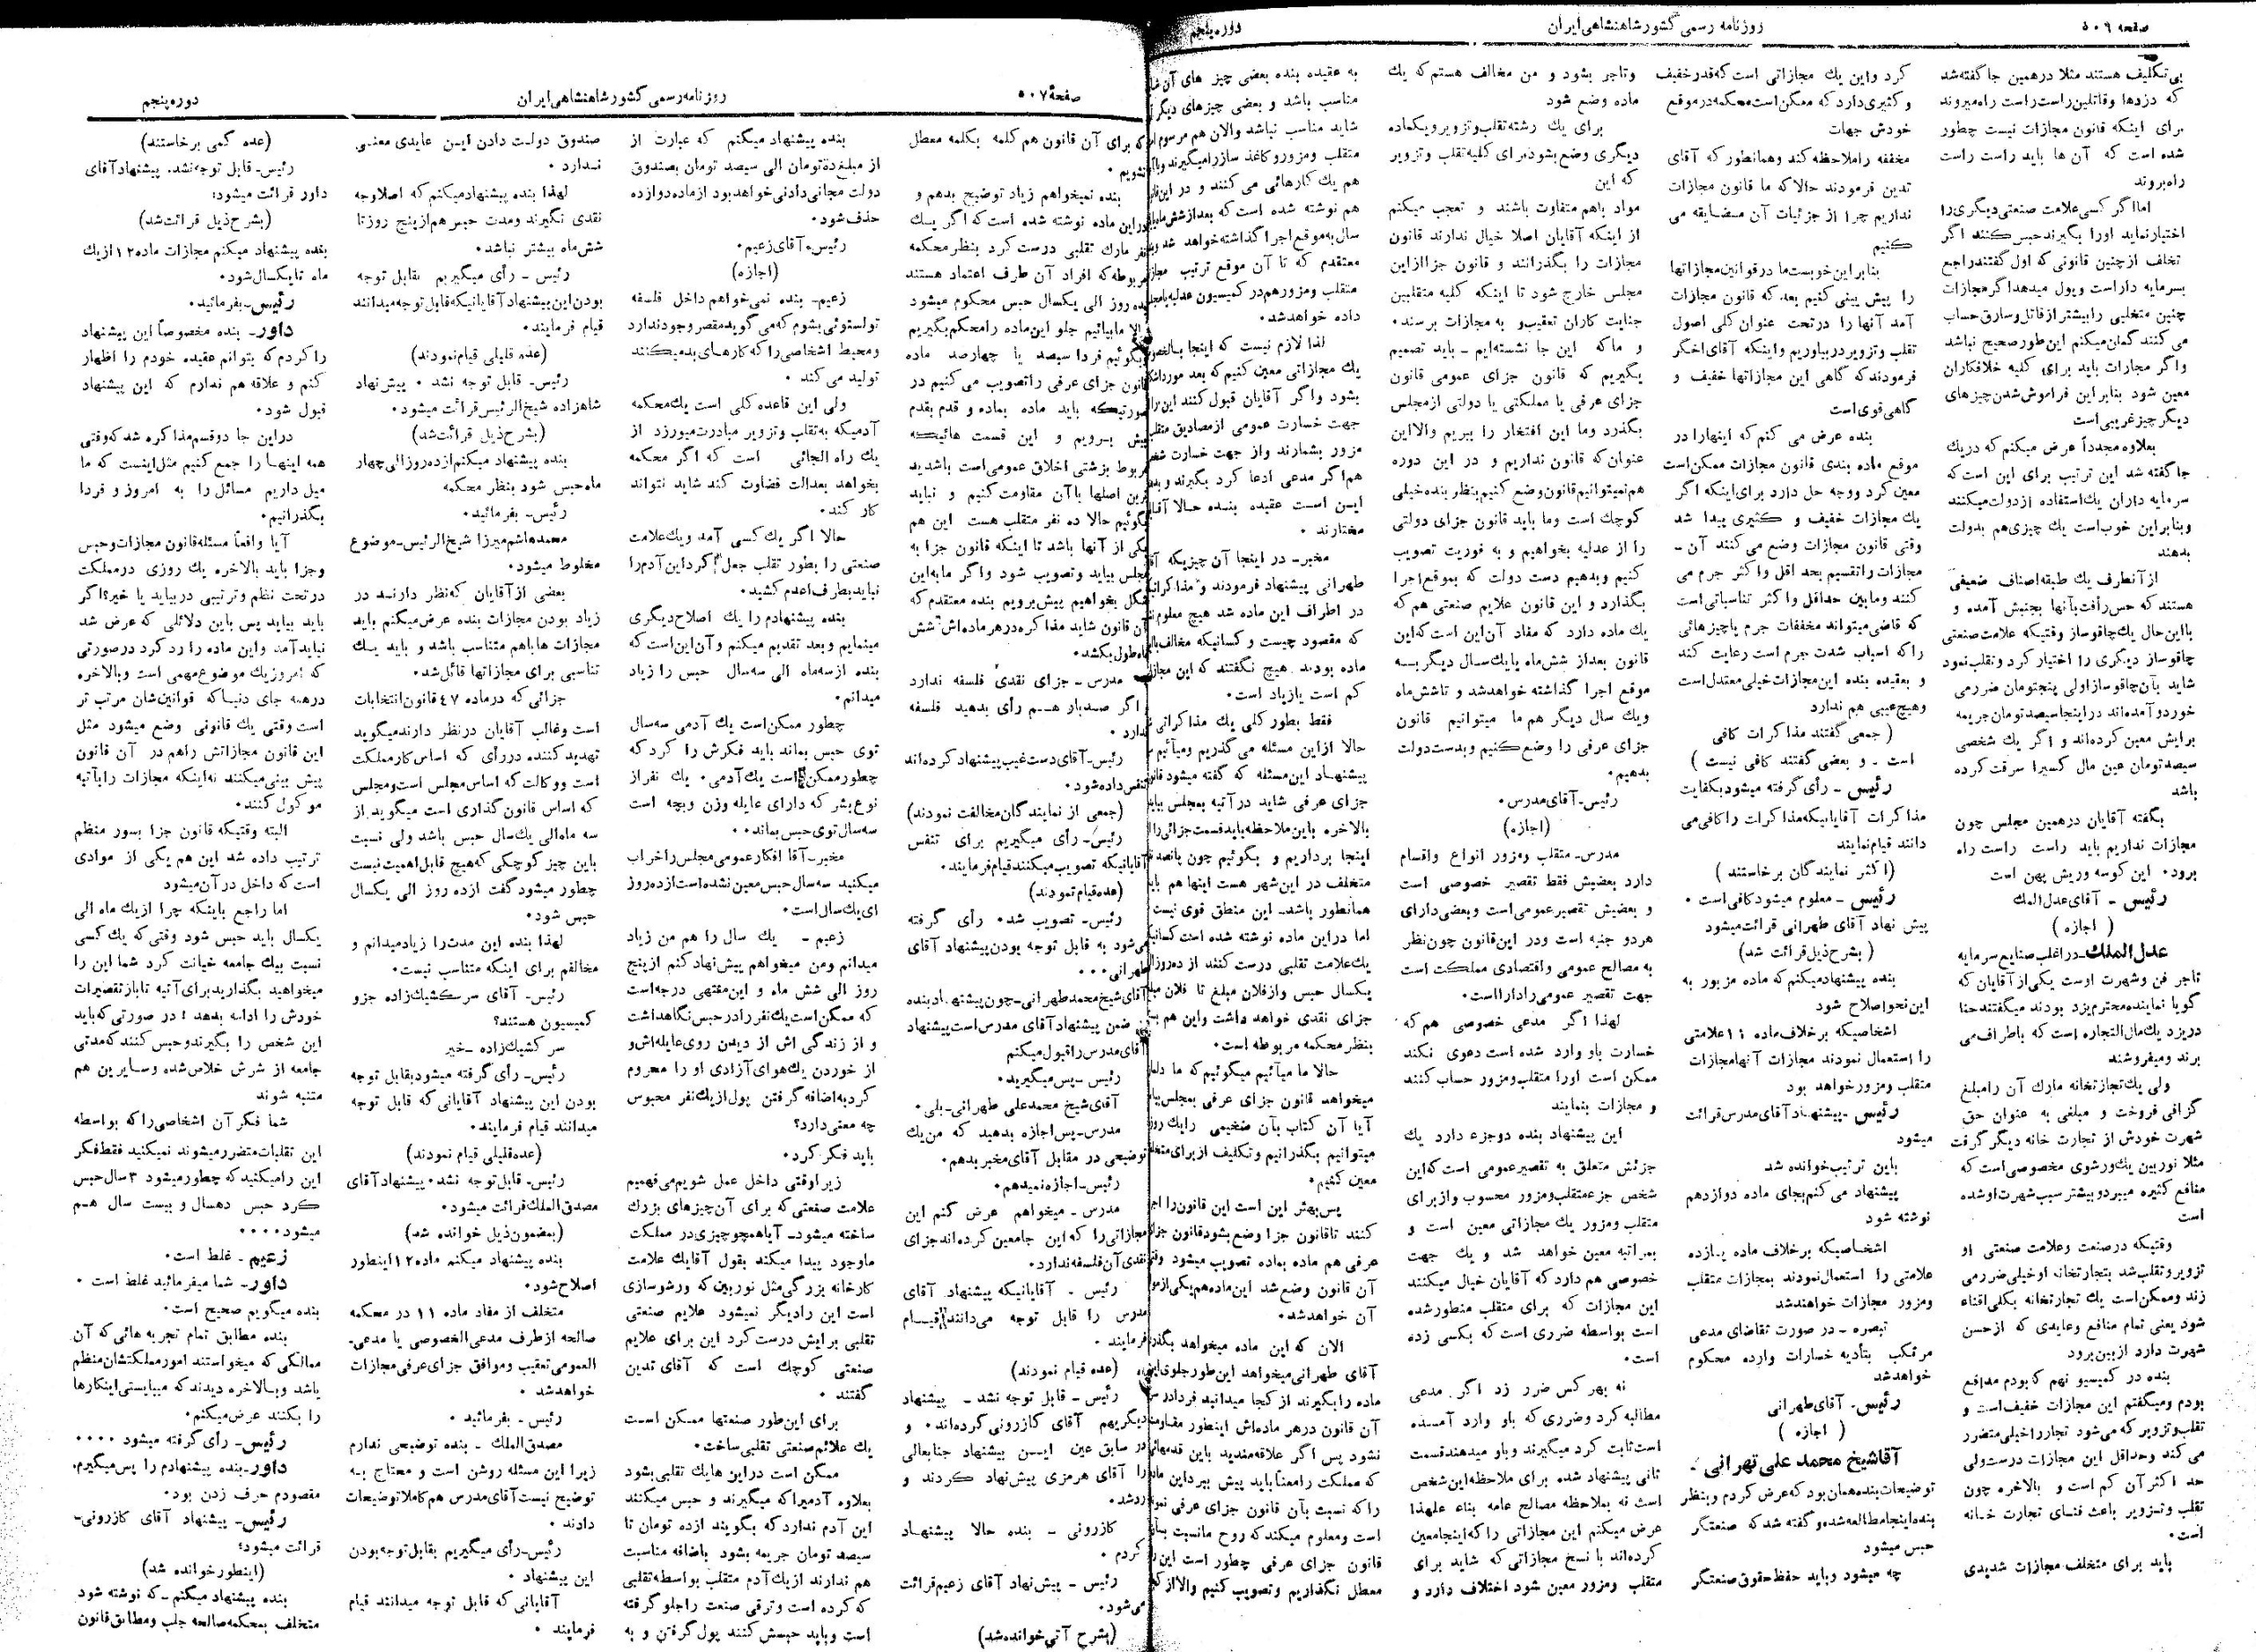 صفحه ۵۰۶
روزنامه رسمی کشور شاهنشاهی ایران
دوره پنجم
بی تکلیف هستند مثلا در همین جا گفته شد
که دزدها و قاتلین راست راست راه میروند
برای اینکه قانون مجازات نیست چطور
شده است که آن ها باید راست راست
راه بروند
اما اگر کسی علامت صنعتی دیگری را
اختیار نماید او را بگیرند حبس کنند اگر
تخلف از چنین قانونی که اول گفتند راجع
بسرمایه دار است و پول میدهد اگر مجازات
چنین متخلبی را بیشتر از قاتل و سارق حساب
می کنند گمان میکنم این طور صحیح نباشد
و اگر مجازات باید برای کلیه خلافکاران
معین شود بنابر این فراموش شدن چیز های
دیگر چیز غریبی است
بعلاوه مجدداً عرض میکنم که در یك
جا گفته شد این ترتیب برای این است که
سرمایه داران یك استفاده از دولت میکنند
و بنابر این خوب است یك چیزی هم بدولت
بدهند
از آنطرف یك طبقه اصناف ضعیفی
هستند که حس رأفت بآنها بجنبش آمده و
با این حال یك چاقو ساز وقتیکه علامت صنعتی
چاقو ساز دیگری را اختیار کرد و تقلب نمود
شاید بآن چاقو ساز اولی پنجتومان ضرر می
خورد و آمده اند در اینجا سیصد تومان جریمه
برایش معین کرده اند و اگر یك شخصی
سیصد تومان عین مال کسی را سرقت کرده
باشد
بگفته آقایان در همین مجلس چون
مجازات نداریم باید راست راست راه
برود. این کوسه و ریش پهن است
رئیس ـ آقای عدل الملك
( اجازه )
عدل الملك ـ در اغلب صنایع سرمایه
تاجر فن و شهرت اوست یکی از آقایان که
گویا نماینده محترم یزد بودند میگفتند حنا
در یزد یك مال التجاره است که باطراف می
برند و میفروشند
ولی یك تجارتخانه مارك آن را مبلغ
گزافی فروخت و مبلغی به عنوان حق
شهرت خودش از تجارت خانه دیگر گرفت
مثلا نوربین یك ورشوی مخصوصی است که
منافع کثیره میبرد و بیشتر سبب شهرت او شده
است
وقتیکه در صنعت و علامت صنعتی او
تزویر و تقلب شد بتجارتخانه او خیلی ضرر می
زند و ممکن است یك تجارتخانه بکلی افناء
شود یعنی تمام منافع و عایدی که از حسن
شهرت دارد از بین برود
بنده در کمیسیونهم که بودم مدافع
بودم و میگفتم این مجازات خفیف است و
تقلب و تزویر که می شود تجار را خیلی متضرر
می کند و حداقل این مجازات درست ولی
حد اکثر آن کم است و بالاخره چون
تقلب و تزویر باعث فنای تجارت خانه
است.
باید برای متخلف مجازات شدیدی
کرد و این یك مجازاتی است که قدر خفیف
و کثیری دارد که ممکن است محکمه در موقع
خودش جهات
مخففه را ملاحظه کند و همانطور که آقای
تدین فرمودند حالا که ما قانون مجازات
نداریم چرا از جزئیات آن مضایقه می
کنیم
بنابر این خوبست ما در قوانین مجازاتها
را پیش بینی کنیم بعد که قانون مجازات
آمد آنها را در تحت عنوان کلی اصول
تقلب و تزویر در بیاوریم و اینکه آقای اخگر
فرمودند که گاهی این مجازاتها خفیف و
گاهی قوی است
بنده عرض می کنم که اینها را در
موقع ماده بندی قانون مجازات ممکن است
معین کرد و وجه حل دارد برای اینکه اگر
یك مجازات خفیف و کثیری پیدا شد
وقتی قانون مجازات وضع می کنند آن ـ
مجازات را تقسیم بحد اقل و اکثر جرم می
کنند و ما بین حداقل و اکثر تناسباتی است
که قاضی میتواند مخففات جرم یا چیز هائی
را که اسباب شدت جرم است رعایت کند
و بعقیده بنده این مجازات خیلی معتدل است
و هیچ عیبی هم ندارد
( جمعی گفتند مذاکرات کافی
است ـ و بعضی گفتند کافی نیست )
رئیس ـ رأی گرفته میشود بکفایت
مذاکرات آقایانیکه مذاکرات را کافی می
دانند قیام نمایند
(اکثر نمایندگان برخاستند )
رئیس ـ معلوم میشود کافی است .
پیش نهاد آقای طهرانی قرائت میشود
( بشرح ذیل قرائت شد)
بنده پیشنهاد میکنم که ماده مزبور به
این نحو اصلاح شود
اشخاصیکه بر خلاف ماده ۱۱ علامتی
را استعمال نمودند مجازات آنها مجازات
متقلب و مزور خواهد بود
رئیس ـ پیشنهاد آقای مدرس قرائت
میشود
باین ترتیب خوانده شد
پیشنهاد می کنم بجای ماده دوازدهم
نوشته شود
اشخاصیکه بر خلاف ماده یازده
علامتی را استعمال نمودند بمجازات متقلب
و مزور مجازات خواهند شد
تبصره ـ در صورت تقاضای مدعی
مرتکب بتأدیه خسارات وارده محکوم
خواهد شد
رئیس ـ آقای طهرانی
( اجازه )
آقا شیخ محمد علی تهرانی :
توضیحات بنده همان بود که عرض کردم و بنظر
بنده اینجا مطالعه شده و گفته شد که صنعتگر
حبس میشود
چه میشود و باید حفظ حقوق صنعتگر
و تاجر بشود و من مخالف هستم که یك
ماده وضع شود
برای یك رشته تقلب و تزویر و یکماده
دیگری وضع بشود برای کلیه تقلب و تزویر
که این
مواد باهم متفاوت باشند و تعجب میکنم
از اینکه آقایان اصلا خیال ندارند قانون
مجازات را بگذرانند و قانون جزا از این
مجلس خارج شود تا اینکه کلیه متقلبین
جنایت کاران تعقیب و به مجازات برسند.
و ما که این جا نشسته ایم ـ باید تصمیم
بگیریم که قانون جزای عمومی قانون
جزای عرفی یا مملکتی یا دولتی از مجلس
بگذرد و ما این افتخار را ببریم و الا این
عنوان که قانون نداریم و در این دوره
هم نمیتوانیم قانون وضع کنیم بنظر بنده خیلی
کوچك است و ما باید قانون جزای دولتی
را از عدلیه بخواهیم و به فوریت تصویب
کنیم و بدهیم دست دولت که بموقع اجرا
بگذارد و این قانون علایم صنعتی هم که
یك ماده دارد که مفاد آن این است که این
قانون بعد از شش ماه یا یك سال دیگر به
موقع اجرا گذاشته خواهد شد و تا شش ماه
و یك سال دیگر هم ما میتوانیم قانون
جزای عرفی را وضع کنیم و بدست دولت
بدهیم.
رئیس ـ آقای مدرس.
(اجازه)
مدرس ـ متقلب و مزور انواع و اقسام
دارد بعضیش فقط تقصیر خصوصی است
و بعضیش تقصیر عمومی است و بعضی دارای
هر دو جنبه است و در این قانون چون نظر
به مصالح عمومی و اقتصادی مملکت است
جهت تقصیر عمومی را دارا است.
لهذا اگر مدعی خصوصی هم که
خسارت باو وارد شده است دعوی نکند
ممکن است او را متقلب و مزور حساب کنند
و مجازات بنمایند
این پیشنهاد بنده دو جزء دارد یك
جزئش متعلق به تقصیر عمومی است که این
شخص جزء متقلب و مزور محسوب و از برای
متقلب و مزور یك مجازاتی معین است و
بمراتبه معین خواهد شد و یك جهت
خصوصی هم دارد که آقایان خیال میکنند
این مجازات که برای متقلب منظور شده
است بواسطه ضرری است که بکسی زده
است.
نه بهر کس ضرر زد اگر مدعی
مطالبه کرد و ضرری که باو وارد آمده
است ثابت کرد میگیرند و باو میدهند قسمت
ثانی پیشنهاد شده برای ملاحظه این شخص
است نه بملاحظه مصالح عامه بناء علیهذا
عرض میکنم این مجازاتی را که اینجا معین
کرده اند با نسخ مجازاتی که شاید برای
متقلب و مزور معین شود اختلاف دارد و
به عقیده بنده بعضی چیز های آن
مناسب باشد و بعضی چیز های دیگر
شاید مناسب نباشد و الان هم مرسوم
متقلب و مزور و کاغذ ساز را میگیرند و
هم یك کارهائی می کنند و در این
هم نوشته شده است که بعد از شش ماه
سال به موقع اجرا گذاشته خواهد شد
معتقدم که تا آن موقع ترتیب
متقلب و مزور هم در کمیسیون عدلیه
داده خواهد شد.
لذا لازم نیست که اینجا
یك مجازاتی معین کنیم که بعد مورد
بشود و اگر آقایان قبول کنند این را
جهت خسارت عمومی از مصادیق متقلب
مزور بشمارند و از جهت خسارت
هم اگر مدعی ادعا کرد بگیرند و
این است عقیده بنده حالا
مختارند .
مخبر ـ در اینجا آن چیزیکه
طهرانی پیشنهاد فرمودند و مذاکراتی
در اطراف این ماده شد هیچ معلوم
که مقصود چیست و کسانیکه مخالف
ماده بودند هیچ نگفتند که این
کم است یا زیاد است.
فقط بطور کلی یك مذاکراتی
حالا از این مسئله می گذریم و میآئیم
پیشنهاد این مسئله که گفته میشود
جزای عرفی شاید در آتیه بمجلس
بالاخره باین ملاحظه باید قسمت جزائی را
اینجا برداریم و بگوئیم چون پانصد
متخلف در این شهر هست اینها هم
همانطور باشد ـ این منطق قوی نیست
اما در این ماده نوشته شده است
یك علامت تقلبی درست کند از ده روز
یکسال حبس و از فلان مبلغ تا فلان
جزای نقدی خواهد داشت و این هم
بنظر محکمه مربوطه است.
حالا ما میآئیم میگوئیم که ما
میخواهد قانون جزای عرفی بمجلس
آیا آن کتاب بآن ضخیمی را یك
میتوانیم بگذرانیم و تکلیف از برای
معین کنیم.
پس بهتر این است این قانون را
کنند تا قانون جزا وضع بشود قانون
عرفی هم ماده بماده تصویب میشود
آن قانون وضع شد این ماده هم یکی از
آن خواهد شد.
الان که این ماده میخواهد
آقای طهرانی میخواهد این طور جلوی
ماده را بگیرند از کجا میدانید فردا
آن قانون در هر ماده اش اینطور
نشود پس اگر علاقه مندید باین
که مملکت را معناً باید پیش ببرد این
را که نسبت بآن قانون جزای عرفی
است و معلوم میکند که روح ما نسبت
قانون جزای عرفی چطور است
معطل نگذاریم و تصویب کنیم و الا
صفحه ۵۰۷
روزنامه رسمی کشور شاهنشاهی ایران
دوره پنجم
که برای آن قانون هم کلمه بکلمه معطل
بشویم .
بنده نمیخواهم زیاد توضیح بدهم و
در این ماده نوشته شده است که اگر یك
نفر مارك تقلبی درست کرد بنظر محکمه
مربوطه که افراد آن طرف اعتماد هستند
ده روز الی یکسال حبس محکوم میشود
حالا ما بیائیم جلو این ماده را محکم بگیریم
بگوئیم فردا سیصد یا چهارصد ماده
قانون جزای عرفی را تصویب می کنیم در
صورتیکه باید ماده بماده و قدم بقدم
پیش برویم و این قسمت هائیکه
مربوط بزشتی اخلاق عمومی است باشدید
ترین اصلها با آن مقاومت کنیم و نباید
بگوئیم حالا ده نفر متقلب هست این هم
یکی از آنها باشد تا اینکه قانون جزا به
مجلس بیاید و تصویب شود و اگر ما به این
شکل بخواهیم پیش برویم بنده معتقدم که
آن قانون شاید مذاکره در هر ماده اش شش
ماه طول بکشد.
مدرس ـ جزای نقدی فلسفه ندارد
اگر صد بار هم رأی بدهید فلسفه
ندارد .
رئیس ـ آقای دست غیب پیشنهاد کرده اند
تنفس داده شود.
(جمعی از نمایندگان مخالفت نمودند)
رئیس ـ رأی میگیریم برای تنفس
آقایانیکه تصویب میکنند قیام فرمایند.
(عده قیام نمودند)
رئیس ـ تصویب شد. رأی گرفته
می شود به قابل توجه بودن پیشنهاد آقای
طهرانی...
آقای شیخ محمد طهرانی ـ چون پیشنهاد بنده
در ضمن پیشنهاد آقای مدرس است پیشنهاد
آقای مدرس را قبول میکنم
رئیس ـ پس میگیرید.
آقای شیخ محمد علی طهرانی ـ بلی.
مدرس ـ پس اجازه بدهید که من یك
توضیحی در مقابل آقای مخبر بدهم.
رئیس ـ اجازه نمیدهم.
مدرس ـ میخواهم عرض کنم این
مجازاتی را که این جا معین کرده اند جزای
نقدی آن فلسفه ندارد.
رئیس ـ آقایانیکه پیشنهاد آقای
مدرس را قابل توجه می دانند قیام
فرمایند .
(عده قیام نمودند)
رئیس ـ قابل توجه نشد ـ پیشنهاد
دیگریهم آقای کازرونی کرده اند. و
در سابق عین این پیشنهاد جنابعالی
را آقای هرمزی پیشنهاد کردند و
رد شد.
کازرونی ـ بنده حالا پیشنهاد
کردم .
رئیس ـ پیش نهاد آقای زعیم قرائت
می شود.
(بشرح آتی خوانده شد)
بنده پیشنهاد میکنم که عبارت از
از مبلغ ده تومان الی سیصد تومان بصندوق
دولت مجانی دادنی خواهد بود از ماده دوازده
حذف شود.
رئیس ـ آقای زعیم.
(اجازه)
زعیم ـ بنده نمی خواهم داخل فلسفه
تولستوئی بشوم که می گوید مقصر وجود ندارد
و محیط اشخاصی را که کارهای بد میکنند
تولید می کند .
ولی این قاعده کلی است یك محکمه
آدمیکه به تقلب و تزویر مبادرت میورزد از
یك راه الجائی است که اگر محکمه
بخواهد بعدالت قضاوت کند شاید نتواند
کار کند.
حالا اگر یك کسی آمد و یك علامت
صنعتی را بطور تقلب جعل کرد این آدم را
نباید بطرف اعدم کشید.
بنده پیشنهادم را یك اصلاح دیگری
مینمایم و بعد تقدیم میکنم و آن این است که
بنده از سه ماه الی سه سال حبس را زیاد
میدانم.
چطور ممکن است یك آدمی سه سال
توی حبس بماند باید فکرش را کرد که
چطور ممکن است یك آدمی. یك نفر از
نوع بشر که دارای عایله و زن و بچه است
سه سال توی حبس بماند..
مخبر ـ آقا افکار عمومی مجلس را خراب
میکنید سه سال حبس معین نشده است از ده روز
الی یك سال است.
زعیم ـ یك سال را هم من زیاد
میدانم و من میخواهم پیش نهاد کنم از پنج
روز الی شش ماه و این منتهی درجه است
که ممکن است یك نفر را در حبس نگاهداشت
و از زندگی اش از دیدن روی عایله اش و
از خوردن یك هوای آزادی او را محروم
کرد به اضافه گرفتن پول از یك نفر محبوس
چه معنی دارد؟
باید فکر کرد.
زیرا وقتی داخل عمل شویم می فهمیم
علامت صنعتی که برای آن چیز های بزرك
ساخته میشود ـ آیا همچو چیزی در مملکت
ما وجود پیدا میکند بقول آقا یك علامت
کارخانه بزرگی مثل نوربین که ورشو سازی
است این را دیگر نمیشود علایم صنعتی
تقلبی برایش درست کرد این برای علایم
صنعتی کوچك است که آقای تدین
گفتند .
برای این طور صنعتها ممکن است
یك علائم صنعتی تقلبی ساخت.
ممکن است در این ها یك تقلبی بشود
بعلاوه آدمی را که میگیرند و حبس میکنند
این آدم ندارد که بگویند از ده تومان تا
سیصد تومان جریمه بشود باضافه مناسبت
هم ندارند از یك آدم متقلب بواسطه تقلبی
که کرده است و ترقی صنعت را جلو گرفته
است و باید حبسش کنند پول گرفتن و به
صندوق دولت دادن این عایدی معنی
ندارد .
لهذا بنده پیشنهاد میکنم که اصلا وجه
نقدی نگیرند و مدت حبس هم از پنج روز تا
شش ماه بیشتر نباشد.
رئیس ـ رأی میگیریم بقابل توجه
بودن این پیشنهاد آقایانیکه قابل توجه میدانند
قیام فرمایند.
(عده قلیلی قیام نمودند)
رئیس ـ قابل توجه نشد . پیش نهاد
شاهزاده شیخ الرئیس قرائت میشود.
(بشرح ذیل قرائت شد)
بنده پیشنهاد میکنم از ده روز الی چهار
ماه حبس شود بنظر محکمه
رئیس ـ بفرمائید.
محمد هاشم میرزا شیخ الرئیس ـ موضوع
مخلوط میشود.
بعضی از آقایان که نظر دارند در
زیاد بودن مجازات بنده عرض میکنم باید
مجازات ها باهم متناسب باشد و باید یك
تناسبی برای مجازاتها قائل شد.
جزائی که در ماده ۴۷ قانون انتخابات
است و غالب آقایان در نظر دارند میگوید
تهدید کننده در رأی که اساس کار مملکت
است و وکالت که اساس مجلس است و مجلس
که اساس قانون گذاری است میگوید از
سه ماه الی یك سال حبس باشد ولی نسبت
باین چیز کوچکی که هیچ قابل اهمیت نیست
چطور میشود گفت از ده روز الی یکسال
حبس شود.
لهذا بنده این مدت را زیاد میدانم و
مخالفم برای اینکه متناسب نیست.
رئیس ـ آقای سر کشیك زاده جزو
کمیسیون هستند؟
سر کشیك زاده ـ خیر
رئیس ـ رأی گرفته میشود بقابل توجه
بودن این پیشنهاد آقایانی که قابل توجه
میدانند قیام فرمایند.
(عده قلیلی قیام نمودند)
رئیس ـ قابل توجه نشد. پیشنهاد آقای
مصدق الملك قرائت میشود.
(بمضمون ذیل خوانده شد)
بنده پیشنهاد میکنم ماده ۱۲ اینطور
اصلاح شود.
متخلف از مفاد ماده ۱۱ در محکمه
صالحه از طرف مدعی الخصوصی یا مدعی ـ
العمومی تعقیب و موافق جزای عرفی مجازات
خواهد شد .
رئیس ـ بفرمائید .
مصدق الملك ـ بنده توضیحی ندارم
زیرا این مسئله روشن است و محتاج به
توضیح نیست آقای مدرس هم کاملا توضیحات
دادند .
رئیس ـ رأی میگیریم بقابل توجه بودن
این پیشنهاد .
آقایانی که قابل توجه میدانند قیام
فرمایند .
(عده کمی برخاستند)
رئیس ـ قابل توجه نشد. پیشنهاد آقای
داور قرائت میشود:
(بشرح ذیل قرائت شد)
بنده پیشنهاد میکنم مجازات ماده ۱۲ از یك
ماه تا یکسال شود.
رئیس ـ بفرمائید.
داور ـ بنده مخصوصاً این پیشنهاد
را کردم که بتوانم عقیده خودم را اظهار
کنم و علاقه هم ندارم که این پیشنهاد
قبول شود.
در این جا دو قسم مذاکره شد که وقتی
همه اینها را جمع کنیم مثل اینست که ما
میل داریم مسائل را به امروز و فردا
بگذرانیم.
آیا واقعاً مسئله قانون مجازات و حبس
و جزا باید بالاخره یك روزی در مملکت
در تحت نظم و ترتیبی در بیاید یا خیر؟ اگر
باید بیاید پس باین دلائلی که عرض شد
نباید آمد و این ماده را رد کرد در صورتی
که امروز یك موضوع مهمی است و بالاخره
در همه جای دنیا که قوانین شان مرتب تر
است وقتی یك قانونی وضع میشود مثل
این قانون مجازاتش را هم در آن قانون
پیش بینی میکنند نه اینکه مجازات را بآتیه
موکول کنند.
البته وقتیکه قانون جزا بسور منظم
ترتیب داده شد این هم یکی از موادی
است که داخل در آن میشود
اما راجع باینکه چرا از یك ماه الی
یکسال باید حبس شود وقتی که یك کسی
نسبت بیك جامعه خیانت کرد شما این را
میخواهید بگذارید برای آتیه تا باز تقصیرات
خودش را ادامه بدهد ! در صورتی که باید
این شخص را بگیرند و حبس کنند که مدتی
جامعه از شرش خلاص شده و سایرین هم
متنبه شوند
شما فکر آن اشخاصی را که بواسطه
این تقلبات متضرر میشوند نمیکنید فقط فکر
این را میکنید که چطور میشود ۳ سال حبس
کرد حبس دهسال و بیست سال هم
میشود....
زعیم ـ غلط است.
داور ـ شما میفرمائید غلط است .
بنده میگویم صحیح است.
بنده مطابق تمام تجربه هائی که آن
ممالکی که میخواستند امور مملکتشان منظم
باشد و بالاخره دیدند که میبایستی اینکارها
را بکنند عرض میکنم.
رئیس ـ رأی گرفته میشود ....
داور ـ بنده پیشنهادم را پس میگیرم.
مقصودم حرف زدن بود.
رئیس ـ پیشنهاد آقای کازرونی ـ
قرائت میشود:
(اینطور خوانده شد)
بنده پیشنهاد میکنم ـ که نوشته شود
متخلف بمحکمه صالحه جلب و مطابق قانون